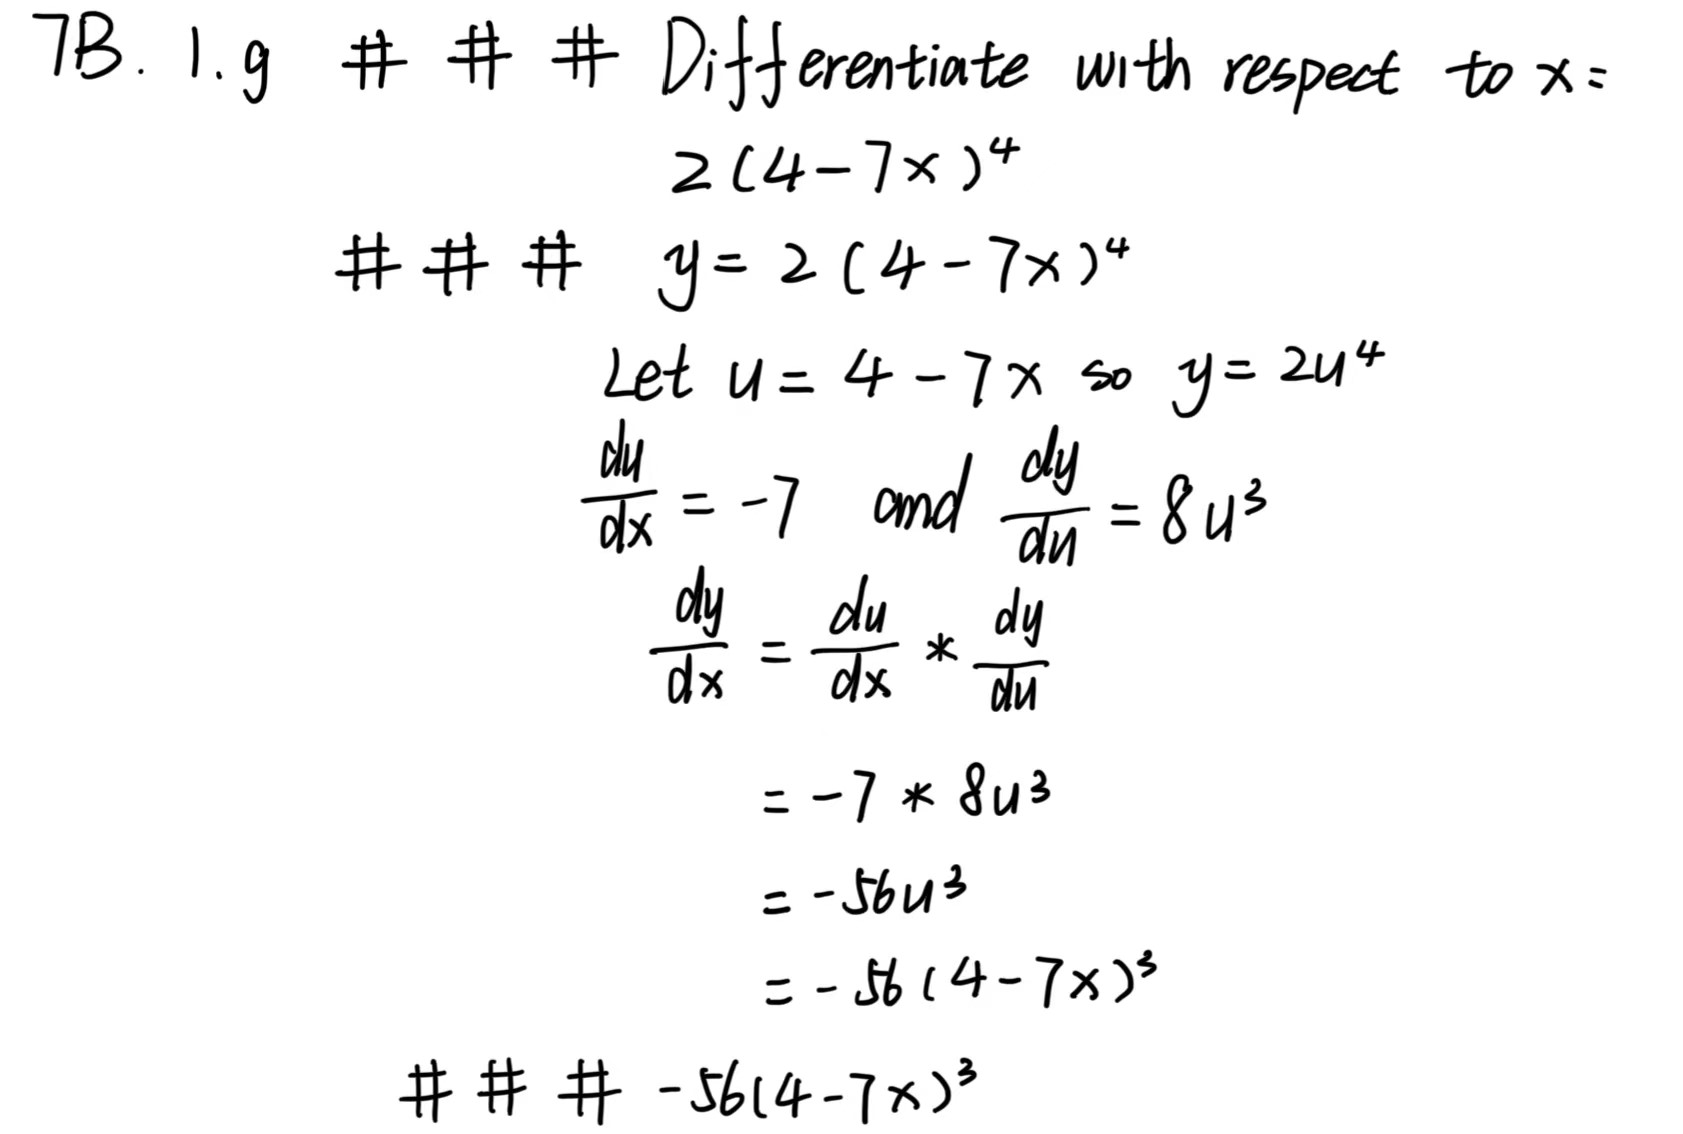 7B. 1.g # # # Differentiate with respect to x=
2(4-7x)⁴
# # # y=2(4-7x)⁴
Let u=4-7x so y=2u⁴
du/dx = -7 and dy/du = 8u³
dy/dx = du/dx * dy/du
= -7 * 8u³
= -56u³
= -56(4-7x)³
# # # -56(4-7x)³